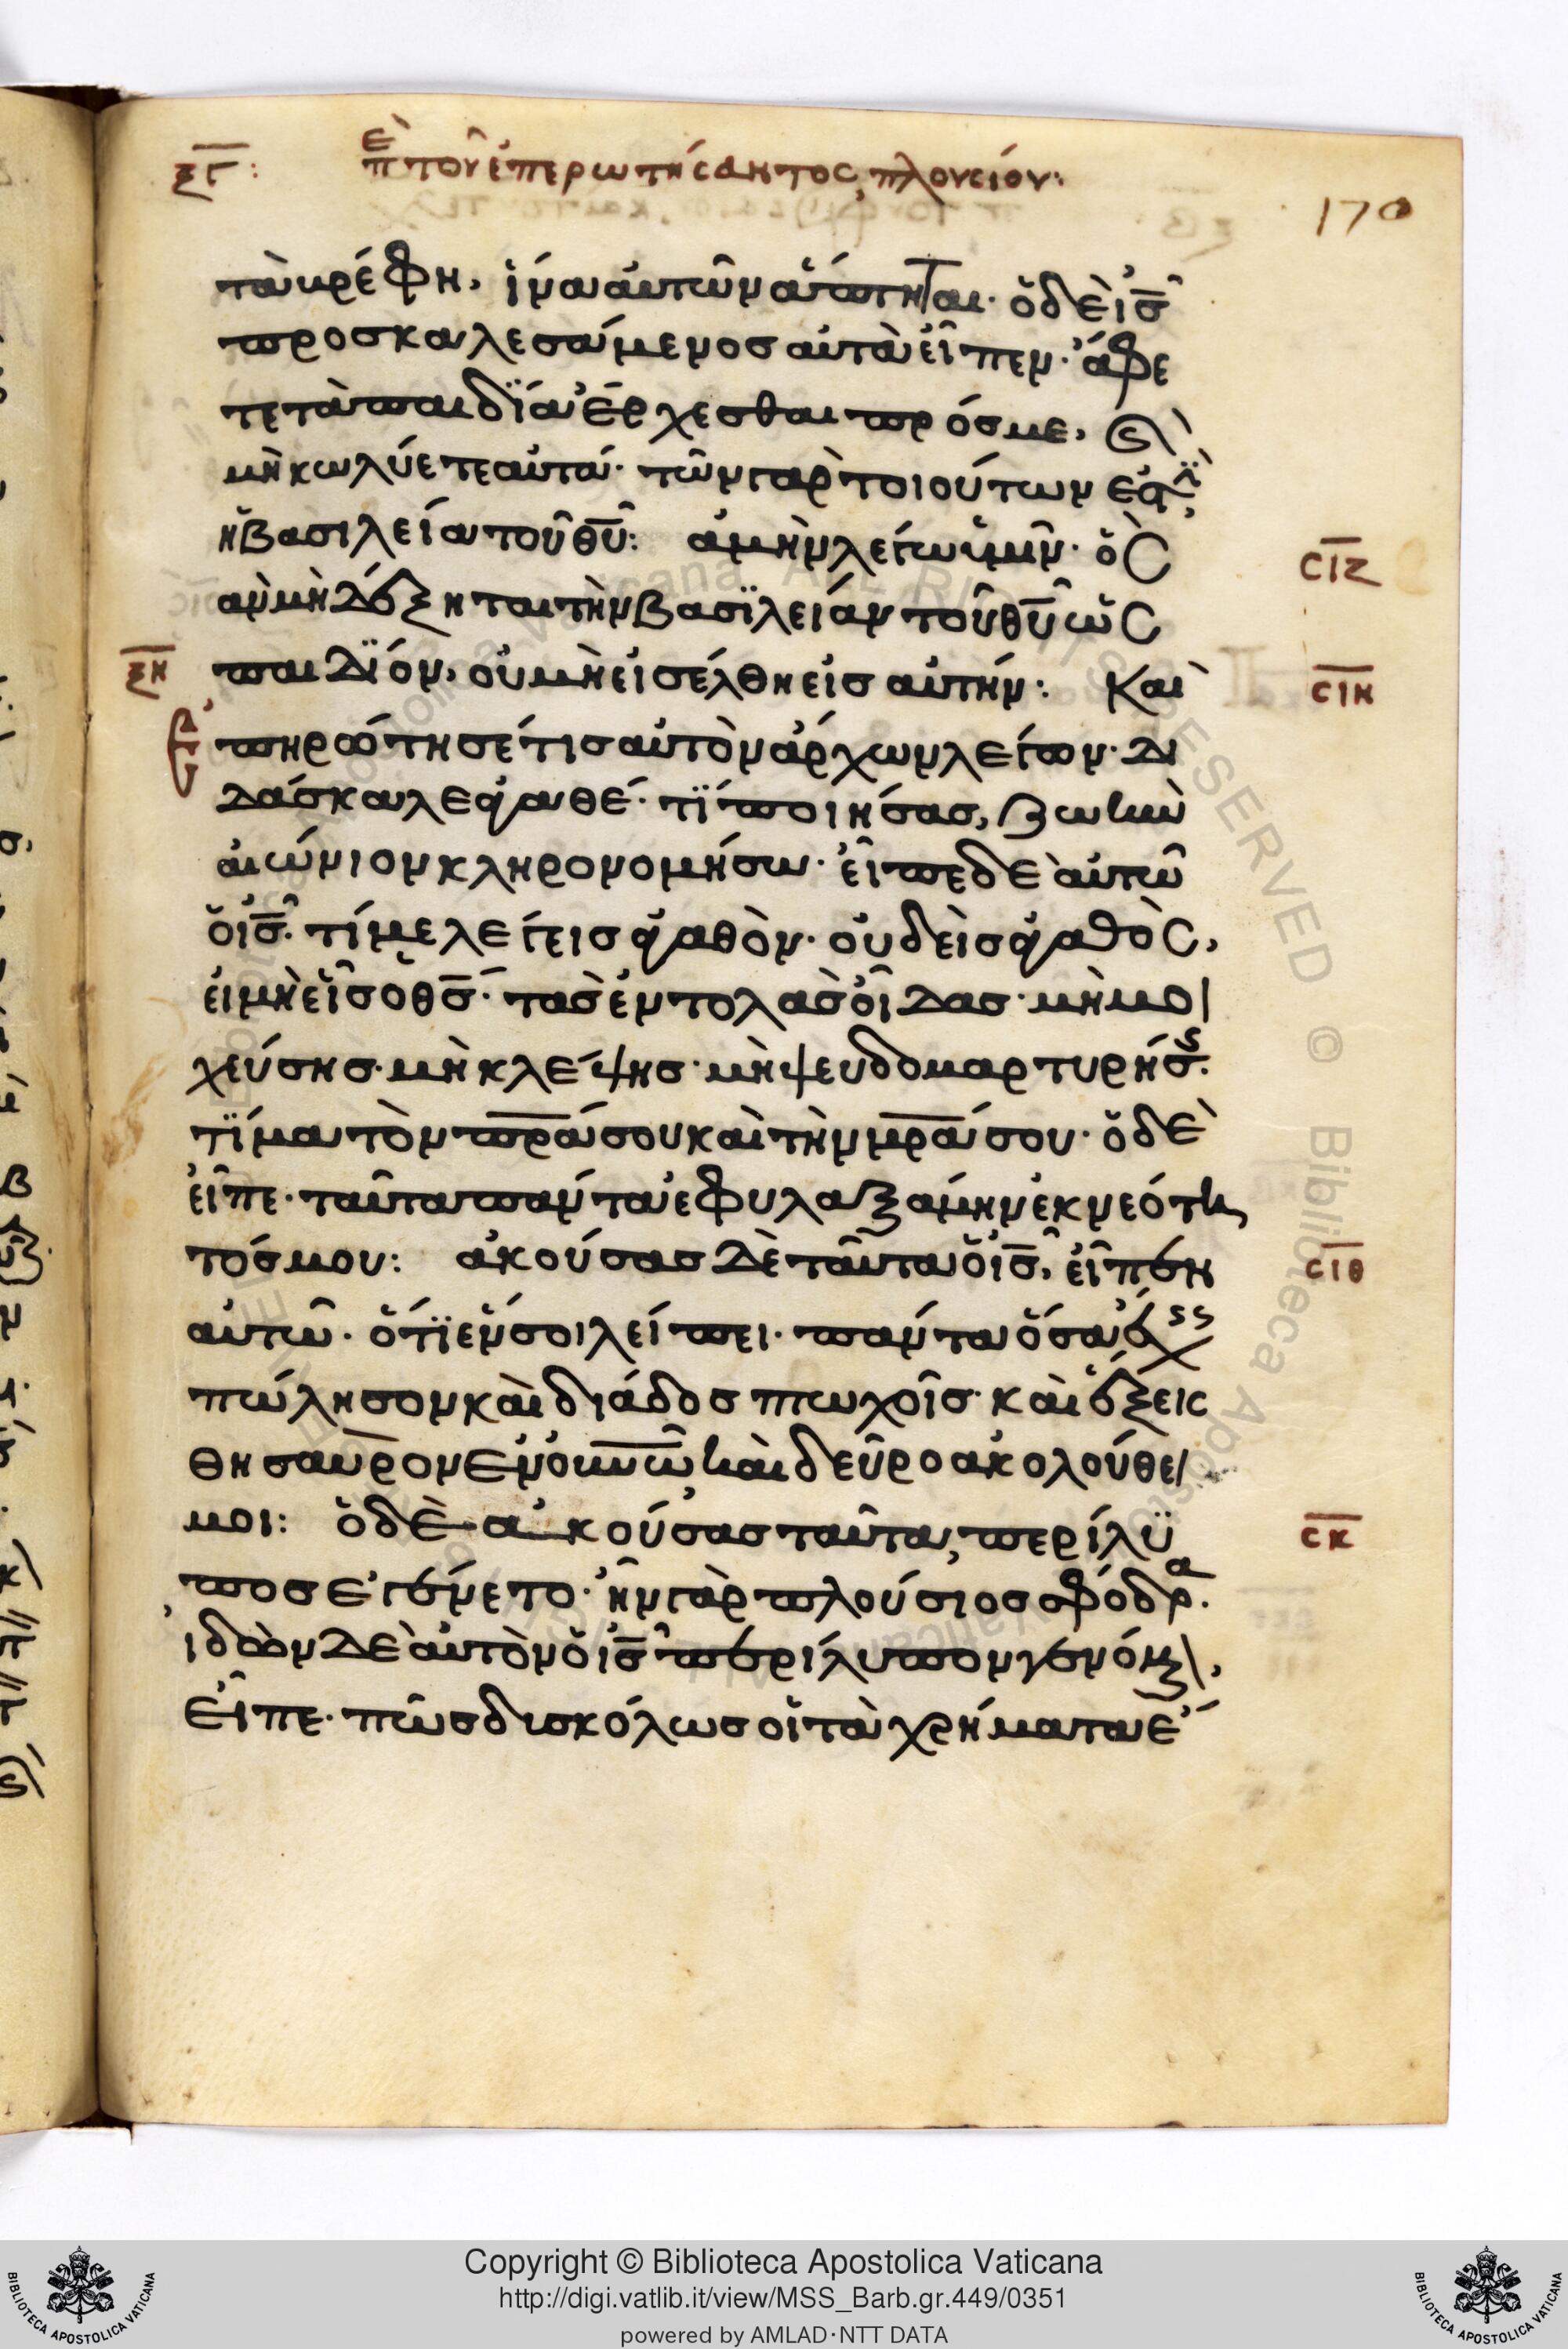 ξγ: πε τοῦ ἐπερωτήσαντος πλουσίου:
170
τὰ βρέφη, ἵνα αὐτῶν ἅπτηται· ὁ δὲ ις
προσκαλεσάμενος αὐτὰ εἶπεν· ἄφε
τε τὰ παιδϊα ἔρχεσθαι πρός με, ϗ
μὴ κωλύετε αὐτά· τῶν γὰρ τοιούτων ἐστὶν
ἡ βασιλεία τοῦ θυ: ἀμὴν λέγω ὑμῖν· ὃς
σιζ
ἂν μὴ δέξηται τὴν βασϊλείαν τοῦ θυ ὡς
ξη
παιδϊον, οὐ μὴ εἰσέλθη εἰς αὐτήν: Καὶ
σιη
ἐπηρώτησέ τις αὐτὸν ἄρχων λέγων· δι
δάσκαλε ἀγαθέ· τϊ ποιήσας, ζωὴν
αἰώνιον κληρονομήσω· εἶπε δὲ αὐτῶ
ὁ ις· τί με λέγεις ἀγαθὸν· οὐδεὶς ἀγαθὸς,
εἰ μὴ εἷς ὁ θς· τὰς ἐντολὰς οἶδας· μὴ μοι
χεύσης· μὴ κλέψης· μὴ ψευδομαρτυρήσης·
τϊμα τὸν πρα σου καὶ τὴν μρα σου· ὁ δὲ
εἶπε· ταῦτα πάντα ἐφυλαξάμην ἐκ νεότη
τός μου: ἀκούσας δὲ ταῦτα ὁ ις, εἶπεν
σιθ
αὐτῶ· ὅτϊ ἕν σοι λείπει· πάντα ὅσα ἔχεις
πώλησον καὶ διάδος πτωχοῖς· καὶ ἕξεις
θησαυρὸν ἐν οὐνω, καὶ δεῦρο ἀκολούθει
μοι: ὁ δὲ ἀκούσας ταῦτα, περίλϋ
σκ
πος ἐγένετο· ἦν γὰρ πλούσιος σφόδρα·
ἰδὼν δὲ αὐτὸν ὁ ις περίλυπον γενόμενον,
εἶπε· πῶς δισκόλως οἱ τὰ χρήματα ἔ
Copyright © Biblioteca Apostolica Vaticana
http://digi.vatlib.it/view/MSS_Barb.gr.449/0351
powered by AMLAD·NTT DATA